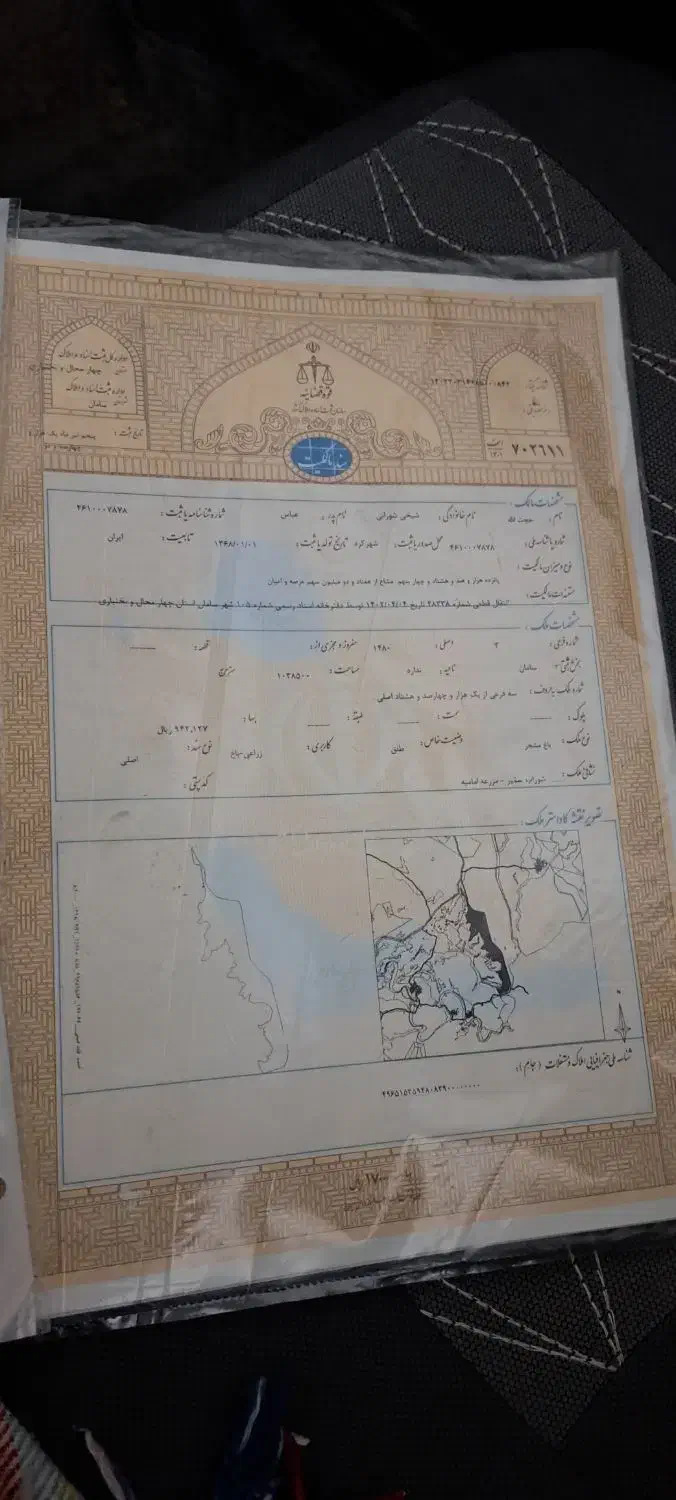 اداره کل ثبت اسناد و املاک
استان چهار محال و بختیاری
اداره ثبت اسناد و املاک
شهرستان سامان
تاریخ ثبت :
قوه قضائیه
سازمان ثبت اسناد و املاک کشور
سند مالکیت
۷۰۲۶۱۱ الف
مشخصات مالک :
نام : حجت الله نام خانوادگی : شیخی شهرانی نام پدر : عباس شماره شناسنامه یا ثبت : ۴۶۱۰۰۰۷۸۷۸
شماره یا شناسه ملی : ۴۶۱۰۰۰۷۸۷۸ محل صدور یا ثبت : شهر کرد تاریخ تولد یا ثبت : ۱۳۶۸/۰۱/۰۱ تابعیت : ایران
نوع و میزان مالکیت :
پانزده هزار و صد و هشتاد و چهار سهم مشاع از هفتاد و دو میلیون سهم عرصه و اعیان
مستندات مالکیت :
انتقال قطعی شماره ۲۸۳۳۸ تاریخ ۱۴۰۲/۰۴/۰۴ توسط دفترخانه اسناد رسمی شماره ۱۰۵ شهر سامان استان چهار محال و بختیاری
مشخصات ملک :
شماره فرعی : ۳ اصلی : ۱۴۸۰ مفروز و مجزی از : قطعه : ـــــ
بخش ثبتی : ۳ سامان ناحیه : ندارد مساحت : ۱۰۳۸۵۰۰ مترمربع
شماره ملک به حروف : سه فرعی از یک هزار و چهارصد و هشتاد اصلی
بلوک : ـــــ سمت : ـــــ طبقه : ـــــ بها : ۹۴۲,۱۲۷ ریال
نوع ملک : باغ مشجر وضعیت خاص : طلق کاربری : زراعی-باغ نوع سند : اصلی
نشانی ملک : شورابه صغیر - مزرعه امامیه کد پستی :
تصویر نقشه کاداستر ملک :
شناسه ملی جغرافیایی املاک و مستغلات (جام) :